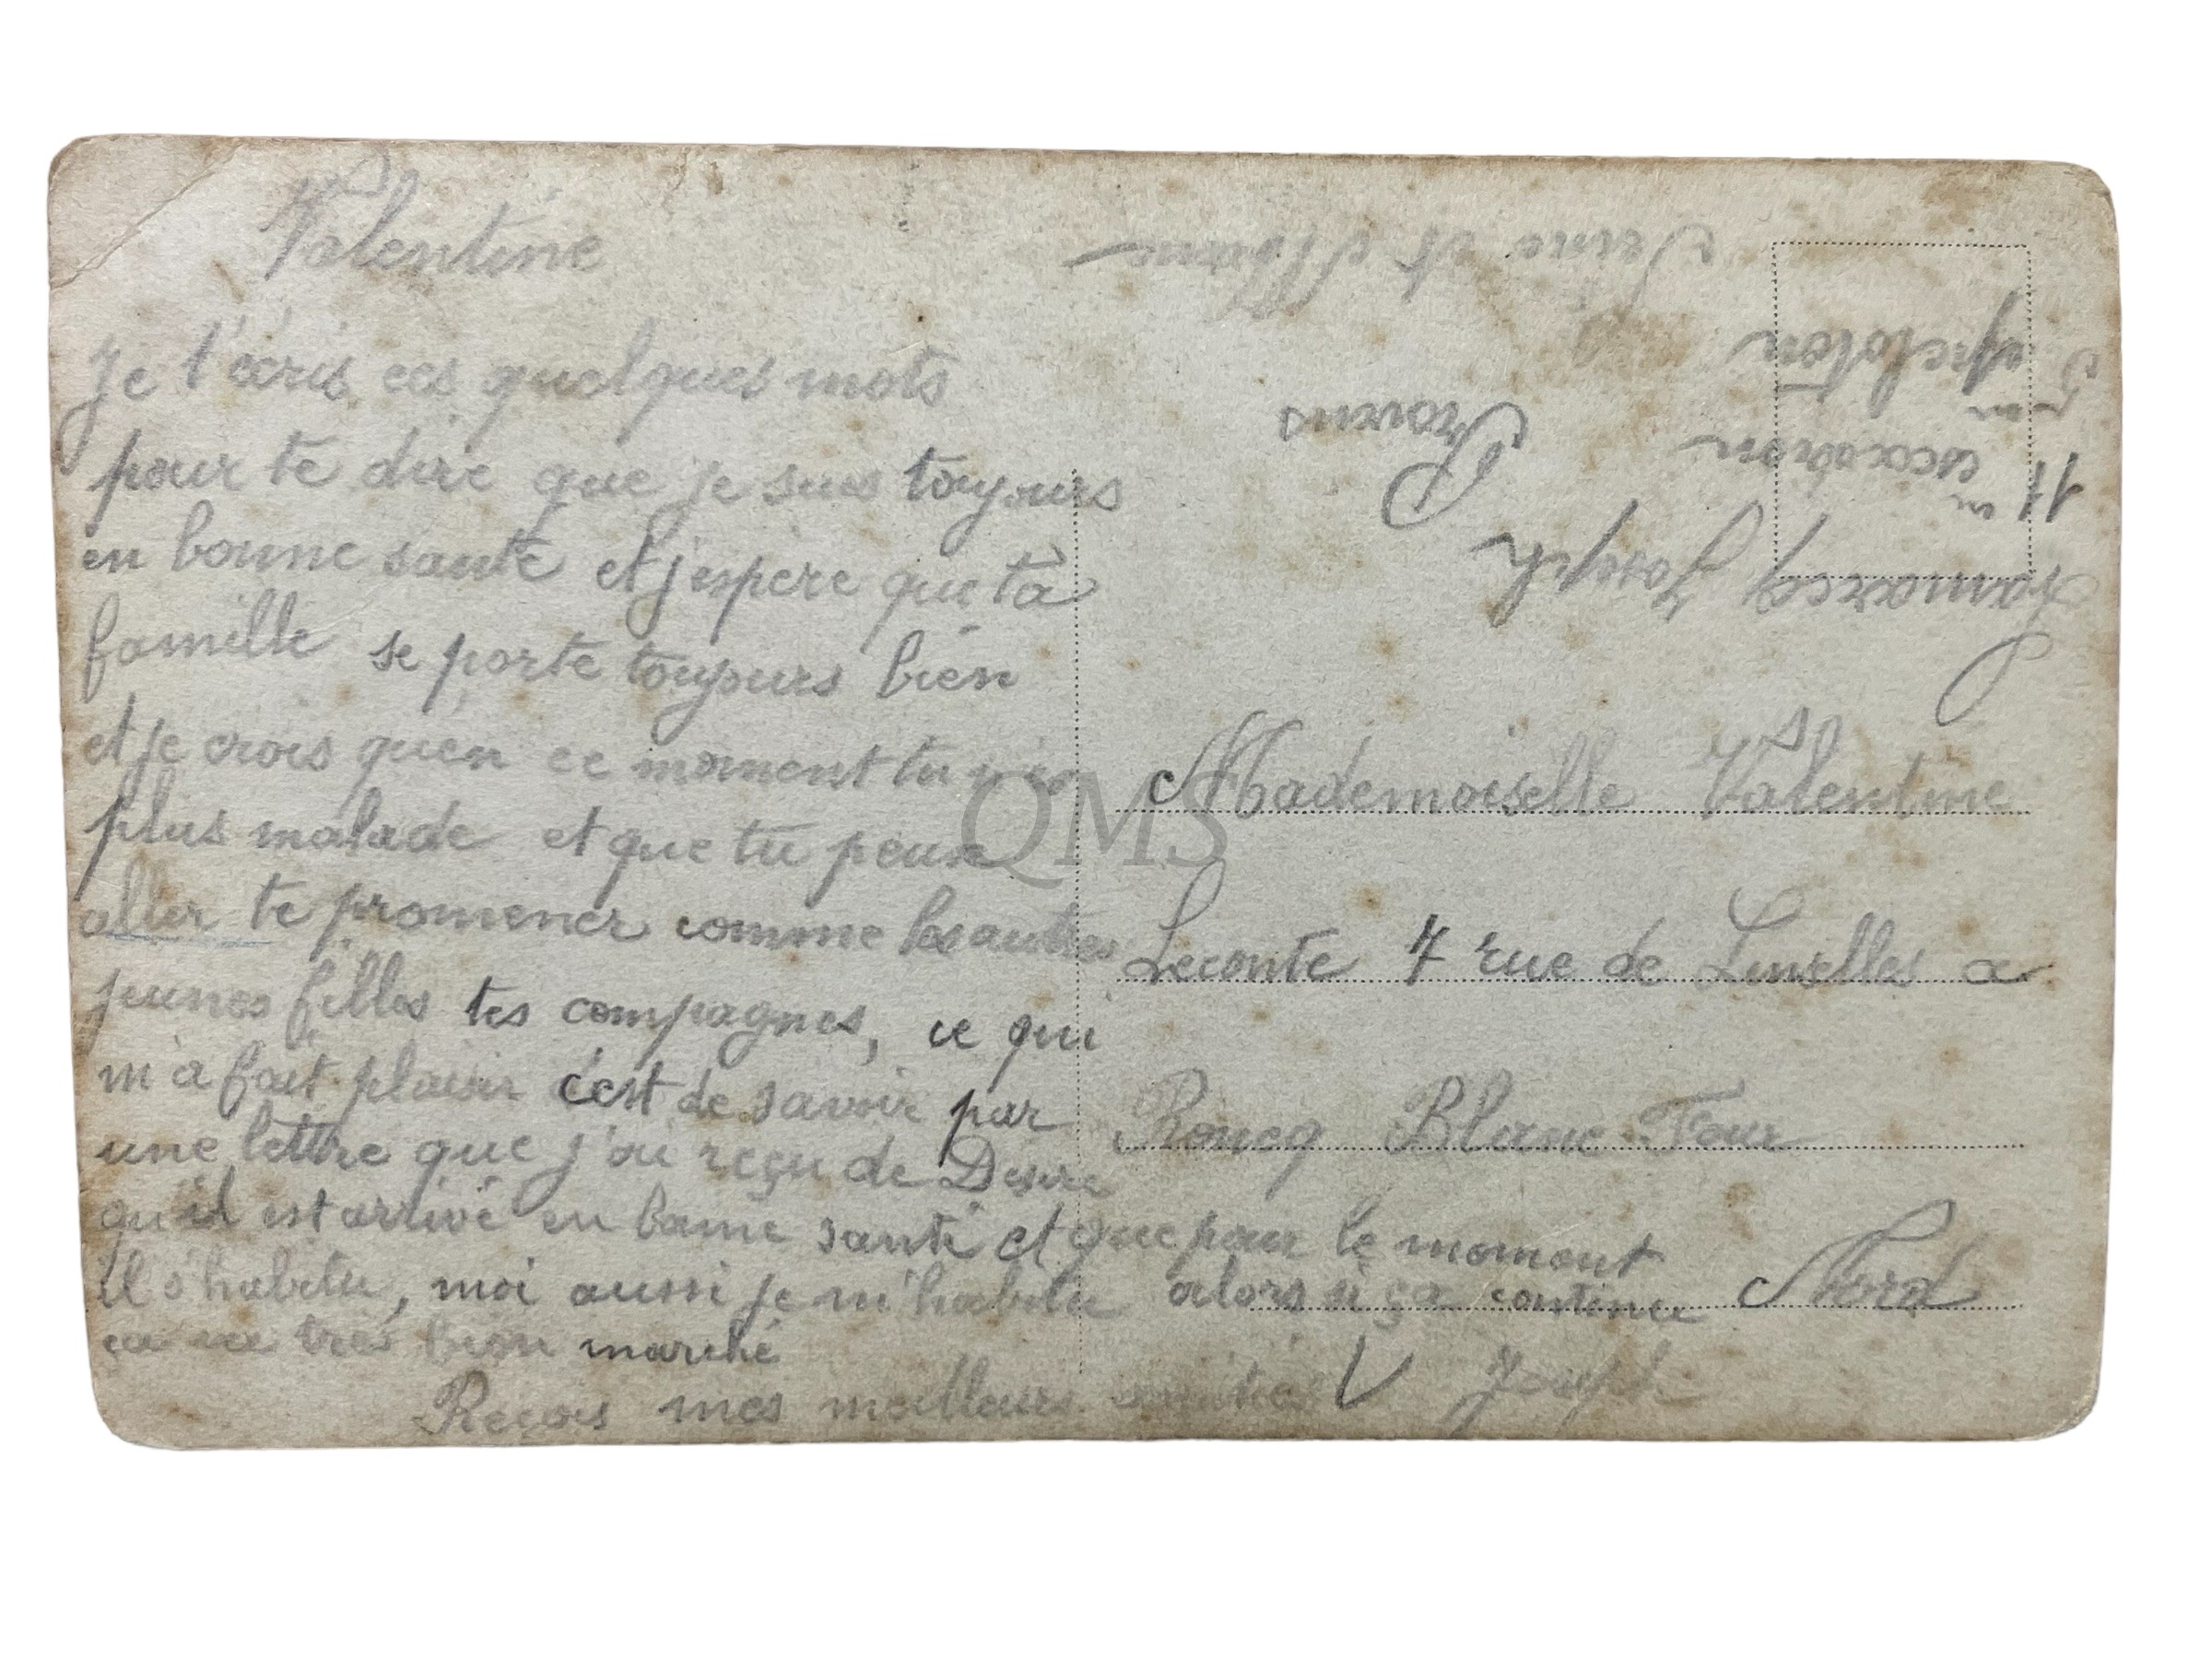 Valentine
Je t'écris ces quelques mots
pour te dire que je suis toujours
en bonne santé et j'espere que ta
famille se porte toujours bien
et je crois qu'en ce moment tu
plus malade et que tu peux
aller te promener comme les autres
jeunes filles tes compagnes, ce qui
m'a fait plaisir c'est de savoir par
une lettre que j'ai reçu de Desire
qu'il est arrivé en bonne santé et que pour le moment
il s'habitu, moi aussi je m'habitu alors si ça continu
ça va tres bien marché
Reçois mes meilleurs amitiés
V Joseph
Joseph
11 m escadron
5 m peloton
Provins
Seine et Marne
Mademoiselle Valentine
Leconte 7 rue de Linselles a
Roncq Blanc Four
Nord
QMS